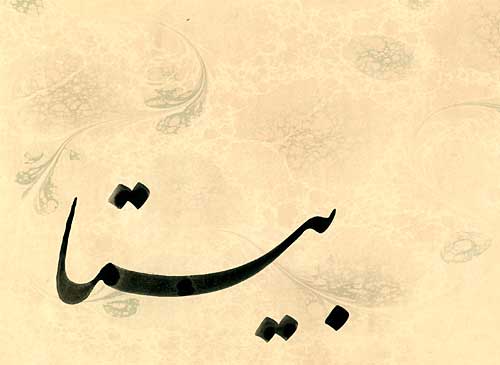 بیتا